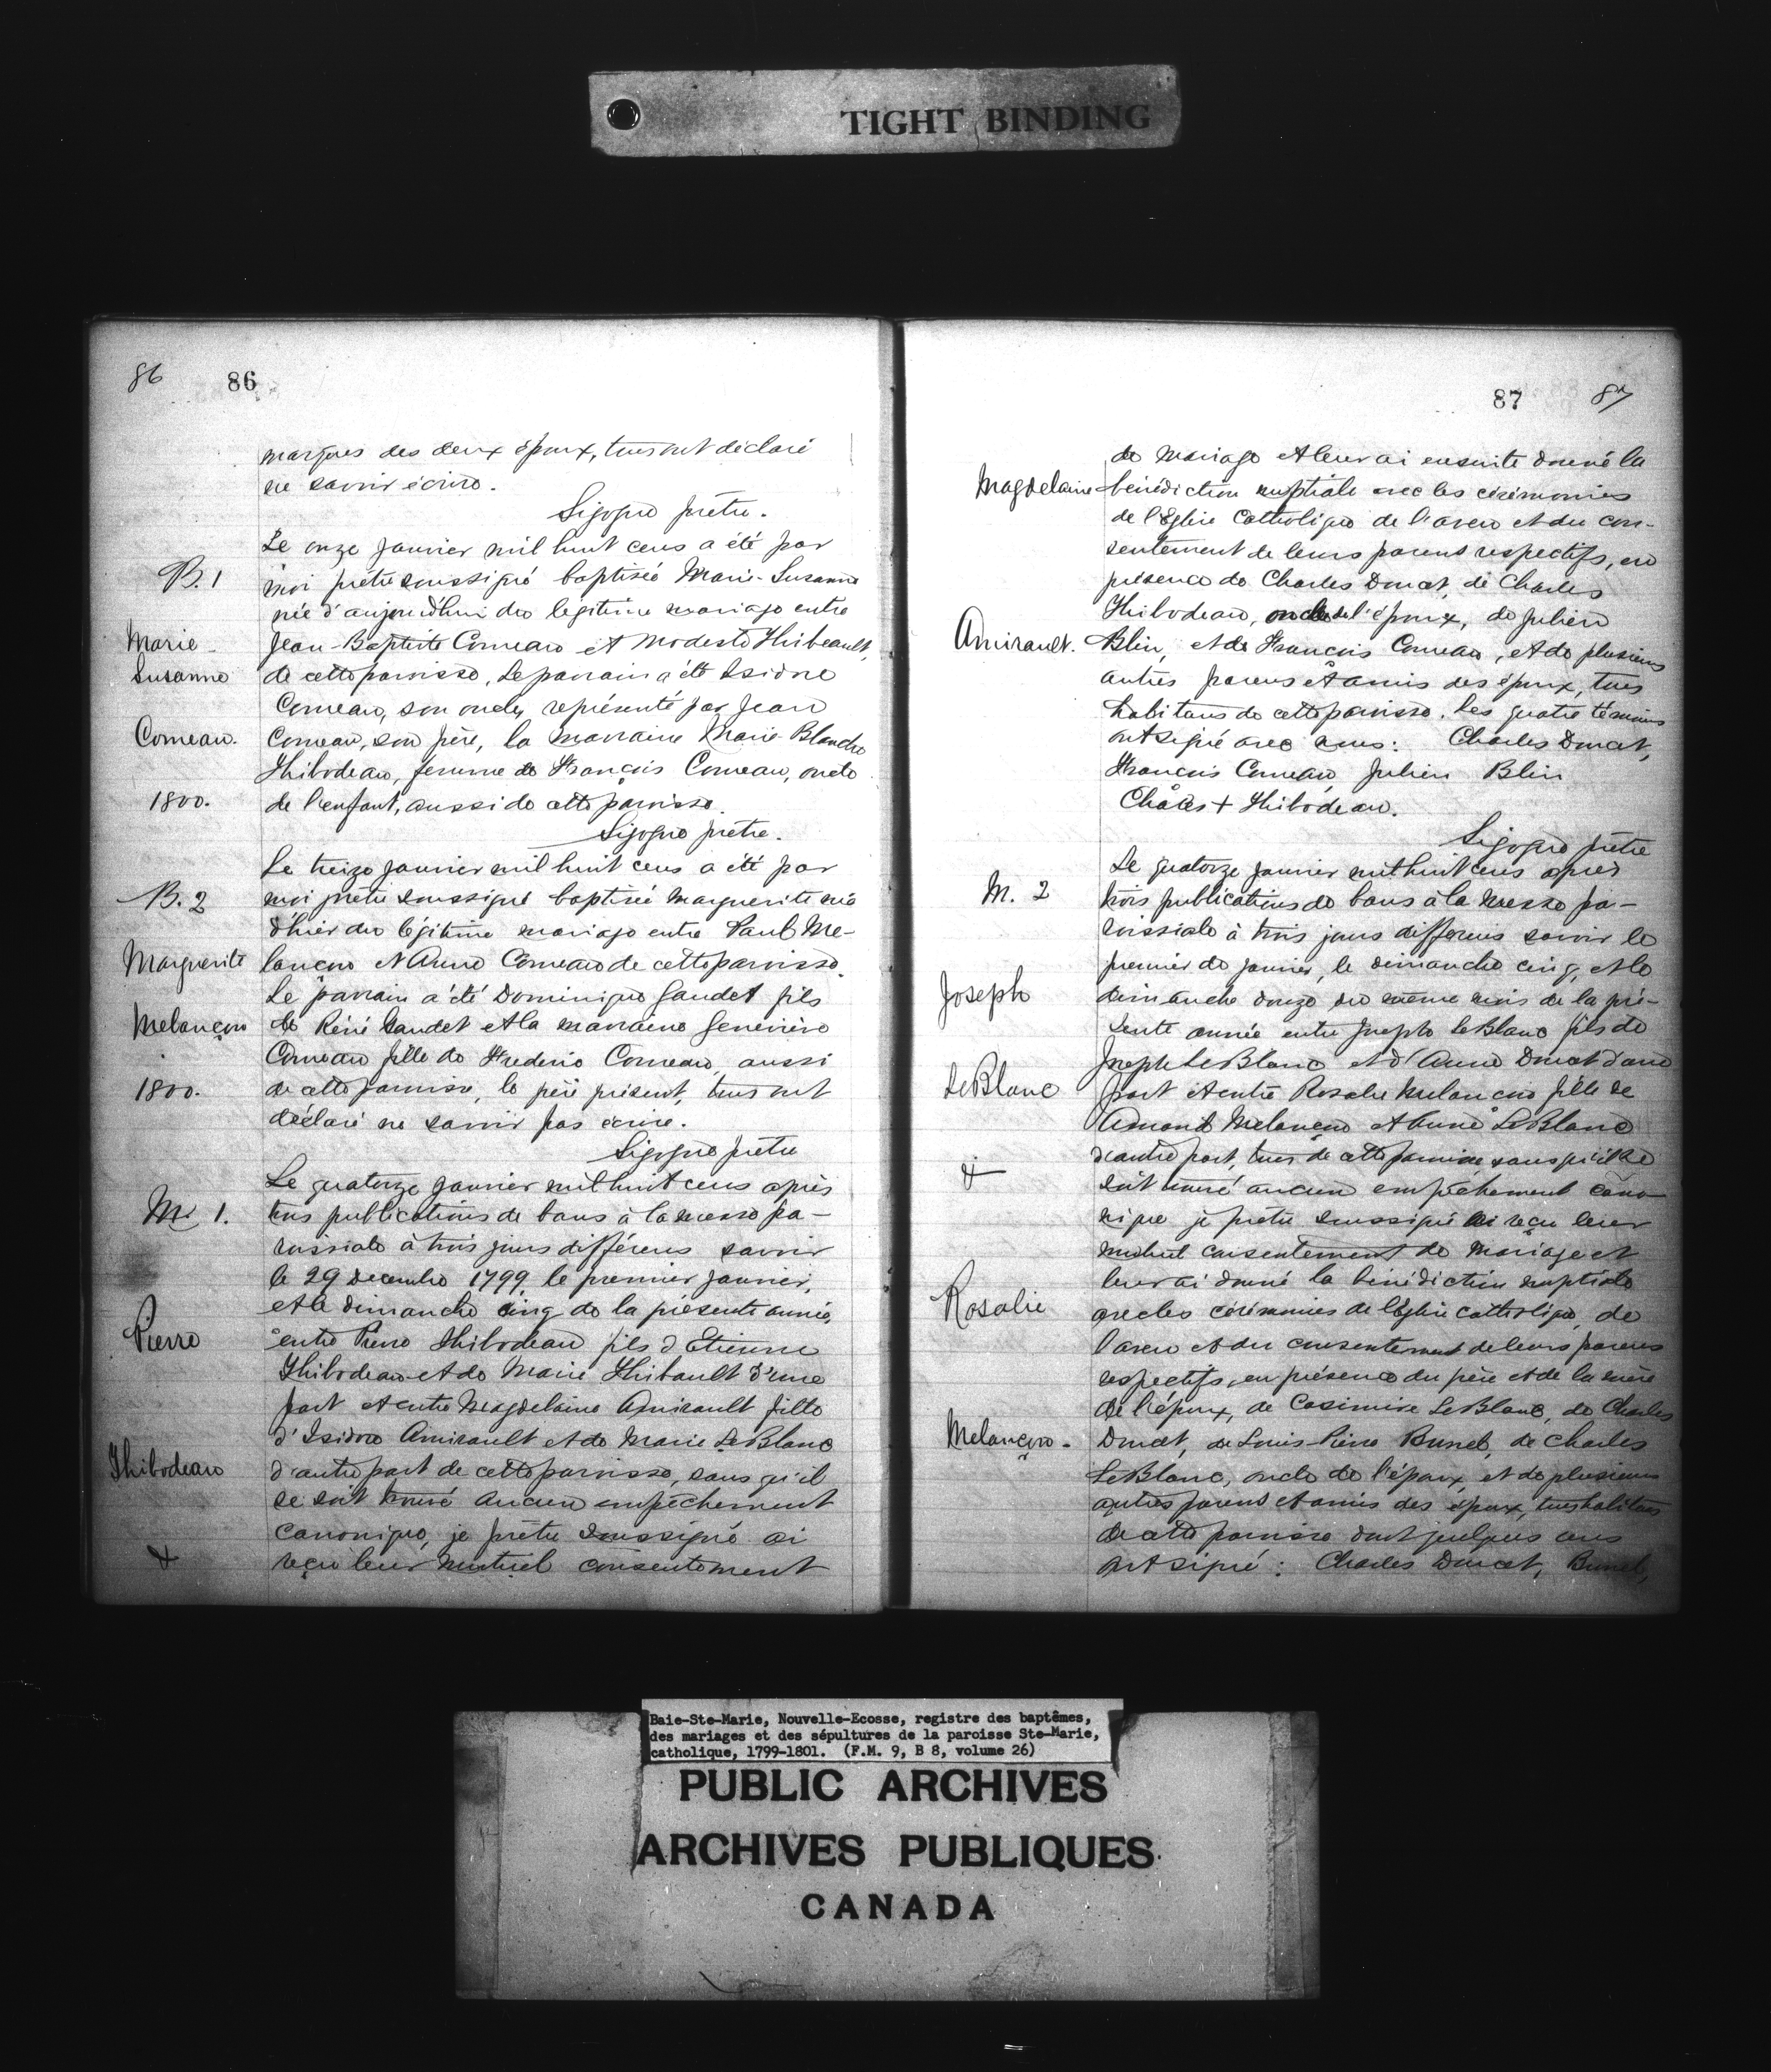 TIGHT BINDING
86
86
marques des deux époux, tous ont déclaré
ne savoir écrire.
Sigogne prêtre.
Le onze janvier mil huit cens a été par
B. 1
moi prêtre soussigné baptisée Marie-Susanne
née d'aujourdhui du légitime mariage entre
Marie-
Jean-Baptiste Comeau et Modeste Thibeault,
Susanne
de cette paroisse, Le parrain a été Isidore
Comeau, son oncle, représenté par Jean
Comeau.
Comeau, son père, la marraine Marie-Blanche
Thibodeau, femme de François Comeau, oncle
1800.
de l'enfant, aussi de cette paroisse.
Sigogne prêtre.
Le treize janvier mil huit cens a été par
B. 2
moi prêtre soussigné baptisée Marguerite née
d'hier du légitime mariage entre Paul Me-
Marguerite
lançon et Anne Comeau de cette paroisse.
Le parrain a été Dominique Gaudet fils
Melançon
de Réné Gaudet et la marraine Geneviève
Comeau fille de Frederic Comeau, aussi
1800.
de cette paroisse, le père présent, tous ont
déclaré ne savoir pas écrire.
Sigogne prêtre
Le quatorze janvier mil huit cens après
M. 1.
trois publications de bans à la messe pa-
roissiale à trois jours différens savoir
le 29 decembre 1799, le premier janvier,
et le dimanche cinq de la présente année,
Pierre
entre Pierre Thibodeau fils d'Etienne
Thibodeau et de Marie Thibault d'une
part et entre Magdelaine Amirault fille
d'Isidore Amirault et de Marie LeBlanc
Thibodeau
d'autre part de cette paroisse, sans qu'il
se soit trouvé aucun empêchement
canonique, je prêtre soussigné ai
&
reçu leur mutuel consentement
87
87
de mariage et leur ai ensuite donné la
Magdelaine
bénédiction nuptiale avec les cérémonies
de l'Eglise Catholique de l'aveu et du con-
sentement de leurs parens respectifs, en
présence de Charles Doucet, de Charles
Thibodeau, oncle de l'époux, de Julien
Amirault.
Blin, et de François Comeau, et de plusieurs
autres parens et amis des époux, tous
habitans de cette paroisse. Les quatre témoins
ont signé avec nous: Charles Doucet,
François Comeau, Julien Blin
Charles + Thibodeau.
Sigogne prêtre
Le quatorze janvier mil huit cens après
M. 2
trois publications de bans à la messe pa-
roissiale à trois jours differens savoir le
premier de janvier, le dimanche cinq, et le
Joseph
dimanche douze du même mois de la pré-
sente année entre Joseph LeBlanc fils de
Joseph LeBlanc et d'Anne Doucet d'une
LeBlanc
part et entre Rosalie Melançon fille de
Amand Melançon et Anne LeBlanc
d'autre part, tous de cette paroisse, sans qu'il se
&
soit trouvé aucun empêchement cano-
nique je prêtre soussigné ai reçu leur
mutuel consentement de mariage et
leur ai donné la bénédiction nuptiale
Rosalie
avec les cérémonies de l'église catholique, de
l'aveu et du consentement de leurs parens
respectifs, en présence du père et de la mère
de l'époux, de Casimire LeBlanc, de Charles
Melançon.
Doucet, de Louis-Pierre Bunel, de Charles
LeBlanc, oncle de l'époux, et de plusieurs
autres parens et amis des époux, tous habitans
de cette paroisse dont quelques uns
ont signé: Charles Doucet, Bunel,
Baie-Ste-Marie, Nouvelle-Ecosse, registre des baptêmes,
des mariages et des sépultures de la paroisse Ste-Marie,
catholique, 1799-1801. (F.M. 9, B 8, volume 26)
PUBLIC ARCHIVES
ARCHIVES PUBLIQUES
CANADA